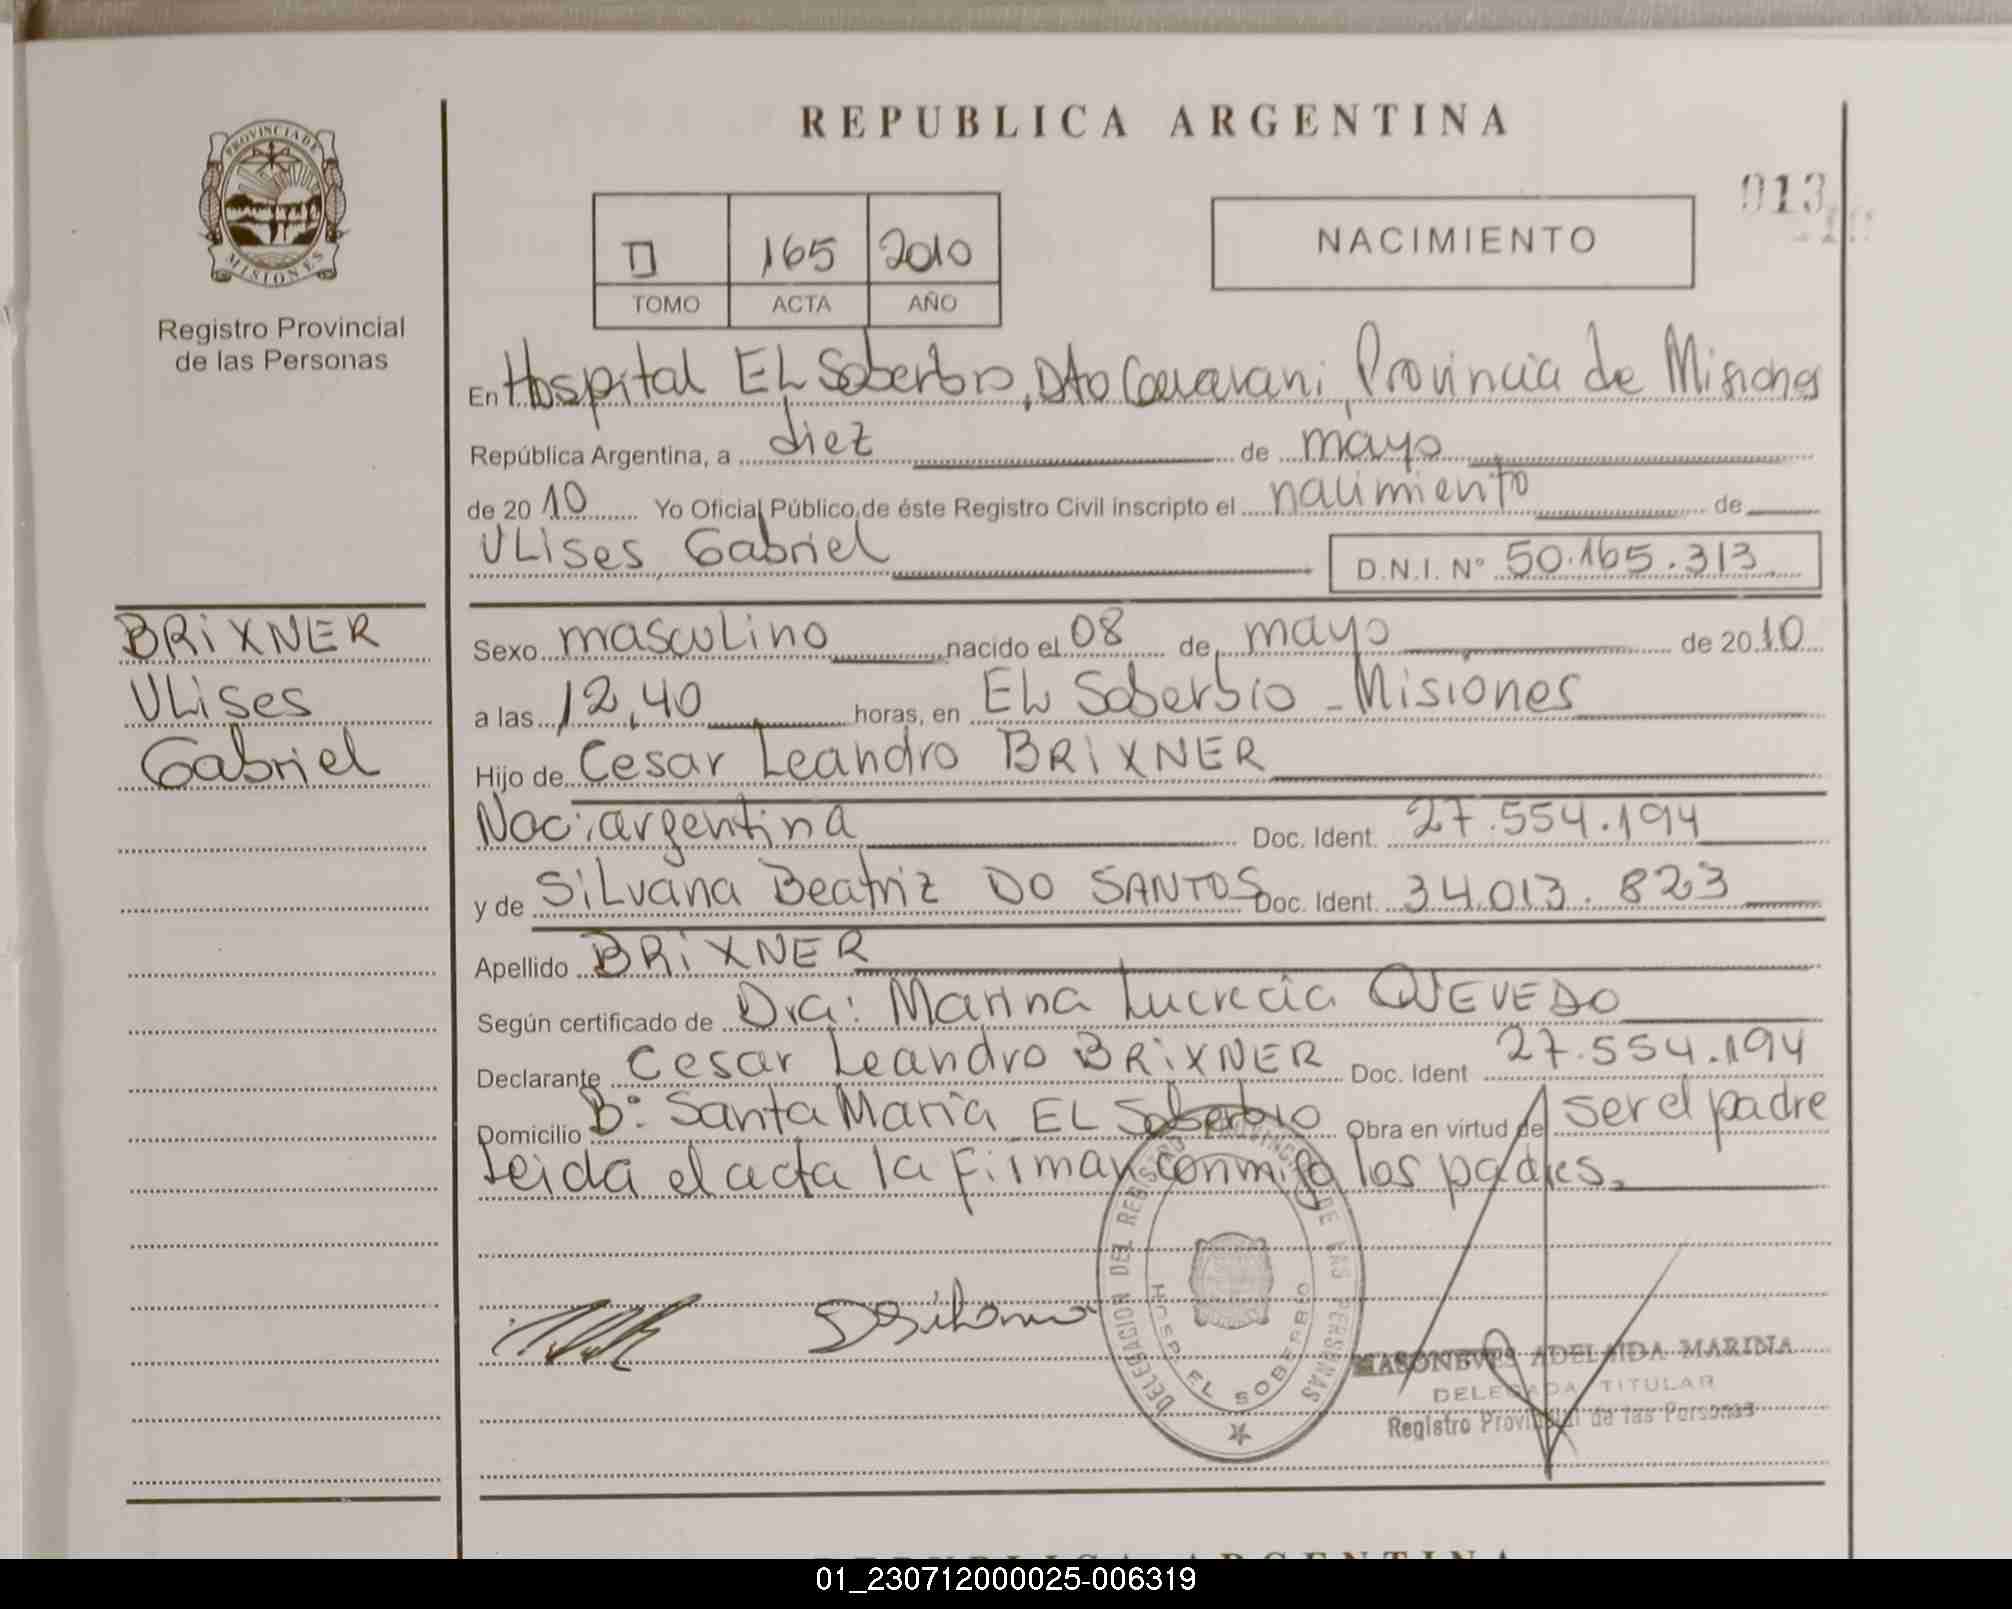 REPUBLICA ARGENTINA
013
PROVINCIA DE
MISIONES
Registro Provincial
de las Personas
II 165 2010
TOMO ACTA AÑO
NACIMIENTO
En Hospital EL Soberbio, Dto Guarani, Provincia de Misiones
República Argentina, a diez de mayo
de 2010 Yo Oficial Público de éste Registro Civil inscripto el nacimiento de
ULises Gabriel D.N.I. Nº 50.165.313
BRiXNER
ULises
Gabriel
Sexo masculino nacido el 08 de mayo de 2010
a las 12,40 horas, en EL Soberbio - Misiones
Hijo de Cesar Leandro BRiXNER
Nac: argentina Doc. Ident. 27.554.194
y de SiLvana Beatriz DO SANTOS Doc. Ident. 34.013.823
Apellido BRiXNER
Según certificado de Dra: Marina Lucrecia QUEVEDO
Declarante Cesar Leandro BRiXNER Doc. Ident 27.554.194
Domicilio Bº Santa Maria EL Soberbio Obra en virtud de ser el padre
Leida el acta la firman conmigo los padres.
DELEGACION DEL REGISTRO PROVINCIAL DE LAS PERSONAS
HOSP. EL SOBERBIO
ADELAIDA MARINA
DELEGADA TITULAR
Registro Provincial de las Personas
REPUBLICA ARGENTINA
01_230712000025-006319